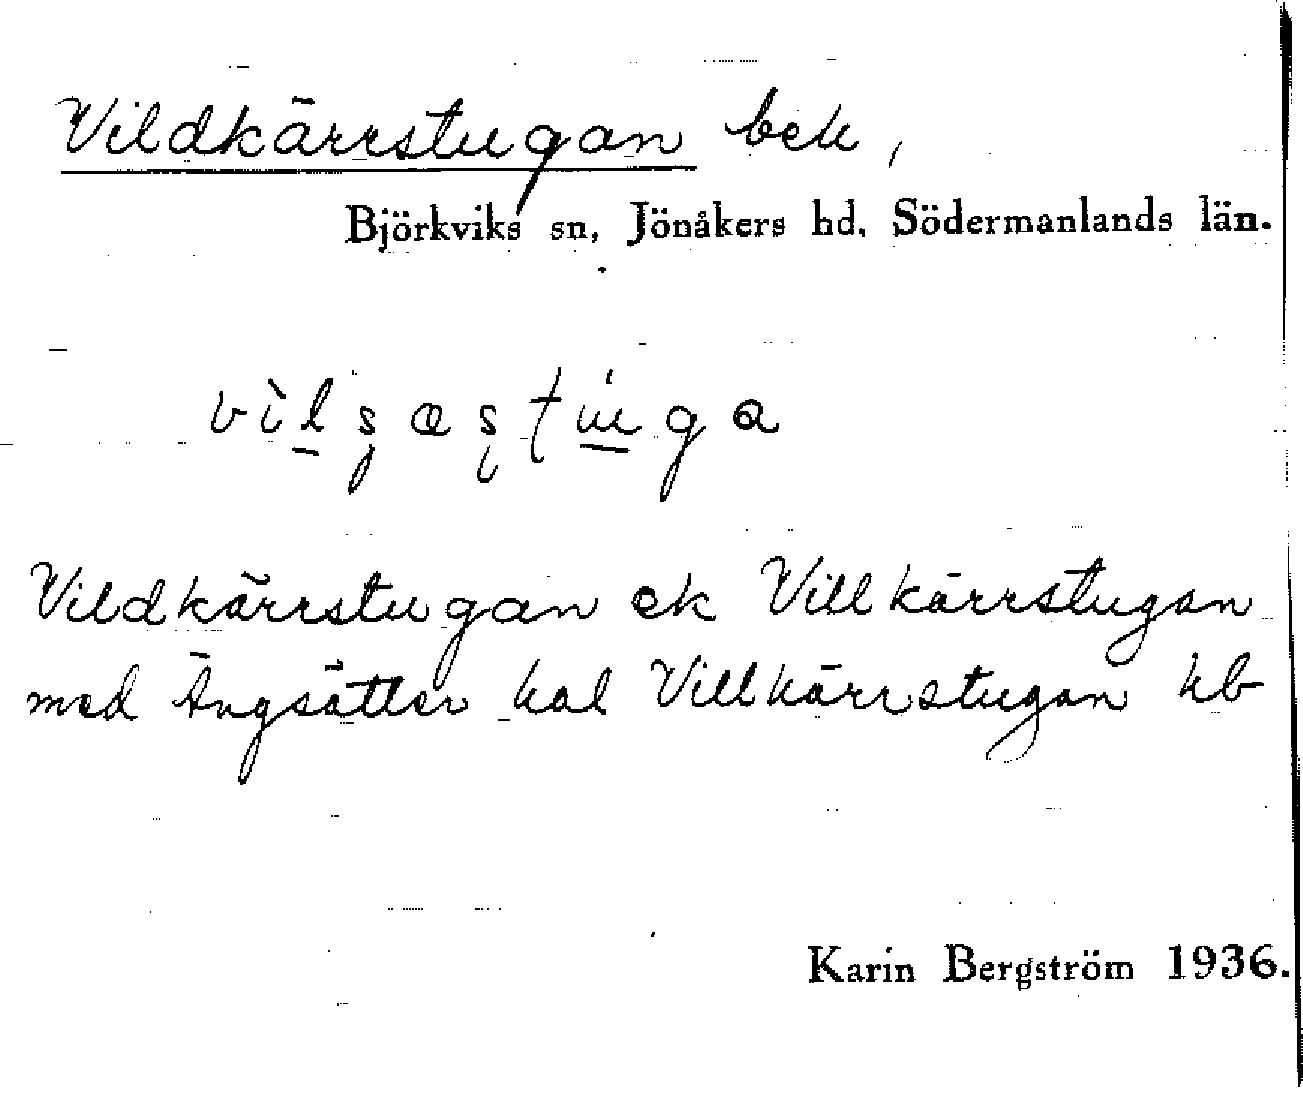 Vildkärrstugan bek,
Björkviks sn, Jönåkers hd. Södermanlands län.
Vildkärrstugan ek Villkärrstugan
med Ängsätter kal Villkärrstugan kb
Karin Bergström 1936.